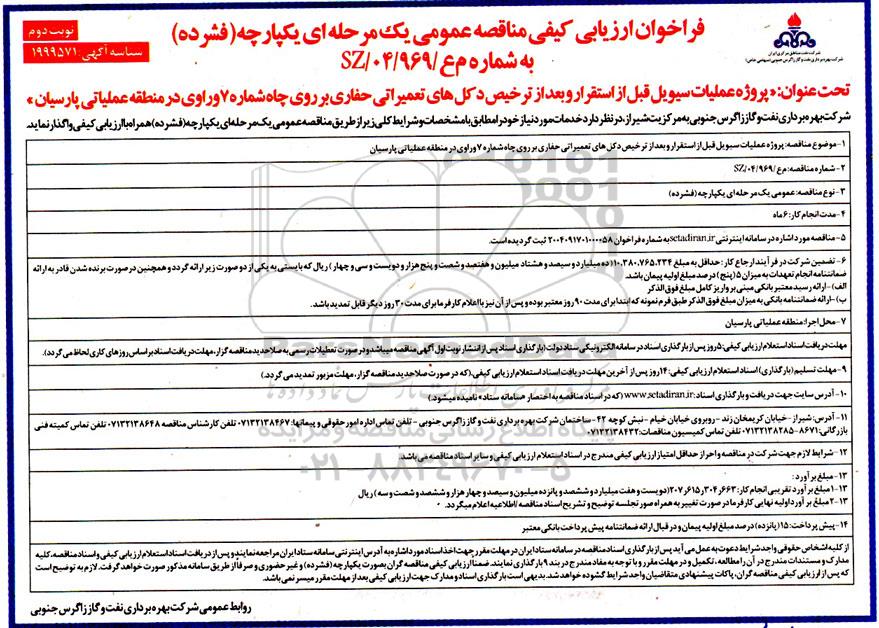 نوبت دوم
شناسه آگهی: ۱۹۹۹۵۷۱
شرکت نفت مناطق مرکزی ایران
شرکت بهره برداری نفت و گاز زاگرس جنوبی (سهامی خاص)
فراخوان ارزیابی کیفی مناقصه عمومی یک مرحله ای یکپارچه (فشرده)
به شماره م‌ع/۹۶۹/۰۴/SZ
تحت عنوان: «پروژه عملیات سیویل قبل از استقرار و بعد از ترخیص دکل های تعمیراتی حفاری بر روی چاه شماره ۷ وراوی در منطقه عملیاتی پارسیان»
شرکت بهره برداری نفت و گاز زاگرس جنوبی به مرکزیت شیراز، در نظر دارد خدمات مورد نیاز خود را مطابق با مشخصات و شرایط کلی زیر از طریق مناقصه عمومی یک مرحله ای یکپارچه (فشرده) همراه با ارزیابی کیفی واگذار نماید.
۱- موضوع مناقصه: پروژه عملیات سیویل قبل از استقرار و بعد از ترخیص دکل های تعمیراتی حفاری بر روی چاه شماره ۷ وراوی در منطقه عملیاتی پارسیان
۲- شماره مناقصه: م‌ع/۹۶۹/۰۴/SZ
۳- نوع مناقصه: عمومی یک مرحله ای یکپارچه (فشرده)
۴- مدت انجام کار: ۶ ماه
۵- مناقصه مورد اشاره در سامانه اینترنتی setadiran.ir به شماره فراخوان ۲۰۰۴۰۹۱۷۰۱۰۰۰۰۵۸ ثبت گردیده است.
۶- تضمین شرکت در فرآیند ارجاع کار: حداقل به مبلغ ۱۰.۳۸۰.۷۶۵.۲۳۴ (ده میلیارد و سیصد و هشتاد میلیون و هفتصد و شصت و پنج هزار و دویست و سی و چهار) ریال که بایستی به یکی از دو صورت زیر ارائه گردد و همچنین در صورت برنده شدن قادر به ارائه
ضمانتنامه انجام تعهدات به میزان ۵ (پنج) درصد مبلغ اولیه پیمان باشد.
الف)- ارائه رسید معتبر بانکی مبنی بر واریز کامل مبلغ فوق الذکر
ب)- ارائه ضمانتنامه بانکی به میزان مبلغ فوق الذکر طبق فرم نمونه که ابتدا برای مدت ۹۰ روز معتبر بوده و پس از آن نیز با اعلام کارفرما برای مدت ۳۰ روز دیگر قابل تمدید باشد.
۷- محل اجرا: منطقه عملیاتی پارسیان
مهلت دریافت اسناد استعلام ارزیابی کیفی: ۵ روز پس از بارگذاری اسناد در سامانه الکترونیکی ستاد دولت (بارگذاری اسناد پس از انتشار نوبت اول آگهی مناقصه میباشد و در صورت تعطیلات رسمی به صلاحدید مناقصه گزار، مهلت دریافت اسناد بر اساس روزهای کاری لحاظ می گردد).
۹- مهلت تسلیم (بارگذاری) اسناد استعلام ارزیابی کیفی: ۱۴ روز پس از آخرین مهلت دریافت اسناد استعلام ارزیابی کیفی، (که در صورت صلاحدید مناقصه گزار، مهلت مزبور تمدید می گردد).
۱۰- آدرس سایت جهت دریافت و بارگذاری اسناد: www.setadiran.ir (که در اسناد مناقصه به اختصار «سامانه ستاد» نامیده میشود).
۱۱- آدرس: شیراز- خیابان کریمخان زند - روبروی خیابان خیام - نبش کوچه ۴۲- ساختمان شرکت بهره برداری نفت و گاز زاگرس جنوبی - تلفن تماس اداره امور حقوقی و پیمانها: ۰۷۱۳۲۱۳۸۴۶۷ تلفن کارشناس مناقصه ۰۷۱۳۲۱۳۸۶۴۸ تلفن تماس کمیته فنی
بازرگانی: ۸۶۷۱-۰۷۱۳۲۱۳۸۲۸۵ تلفن تماس کمیسیون مناقصات: ۰۷۱۳۲۱۳۸۴۳۲
۱۲- شرایط لازم جهت شرکت در مناقصه و احراز حداقل امتیاز ارزیابی کیفی مندرج در اسناد استعلام ارزیابی کیفی و سایر اسناد مناقصه می باشد.
۱۳- مبلغ برآورد:
۱-۱۳- مبلغ برآورد تقریبی انجام کار: ۲۰۷٫۶۱۵٫۳۰۴٫۶۶۳ (دویست و هفت میلیارد و ششصد و پانزده میلیون و سیصد و چهار هزار و ششصد و شصت و سه) ریال
۲-۱۳- مبلغ برآورد اولیه نهایی کارفرما در صورت تغییر به همراه صورتجلسه توضیح و تشریح اسناد مناقصه / اطلاعیه اعلام میگردد.
۱۴- پیش پرداخت: ۱۵ (پانزده) درصد مبلغ اولیه پیمان و در قبال ارائه ضمانتنامه پیش پرداخت بانکی معتبر
از کلیه اشخاص حقوقی واجد شرایط دعوت به عمل می آید پس از بارگذاری اسناد مناقصه در سامانه ستاد ایران در مهلت مقرر جهت اخذ اسناد مورد اشاره به آدرس اینترنتی سامانه ستاد ایران مراجعه نمایند و پس از دریافت اسناد استعلام ارزیابی کیفی و اسناد مناقصه، کلیه
مدارک و مستندات مندرج در آن را مطالعه، تکمیل و در مهلت مقرر و با توجه به مفاد مندرج در بند ۹ بارگذاری نمایند. ضمنا ارزیابی کیفی مناقصه گران بصورت یکپارچه (فشرده) و غیر حضوری و صرفا از طریق سامانه مذکور صورت خواهد گرفت. لازم به توضیح است
که پس از ارزیابی کیفی مناقصه گران، پاکات پیشنهادی متقاضیان واجد شرایط گشوده خواهد شد. بدیهی است بارگذاری اسناد و مدارک جهت ارزیابی کیفی بعد از مهلت مقرر میسر نمی باشد.
روابط عمومی شرکت بهره برداری نفت و گاز زاگرس جنوبی
ParsNamadData
پایگاه اطلاع رسانی مناقصه و مزایده
۰۲۱-۸۸۳۴۹۶۷۰-۵